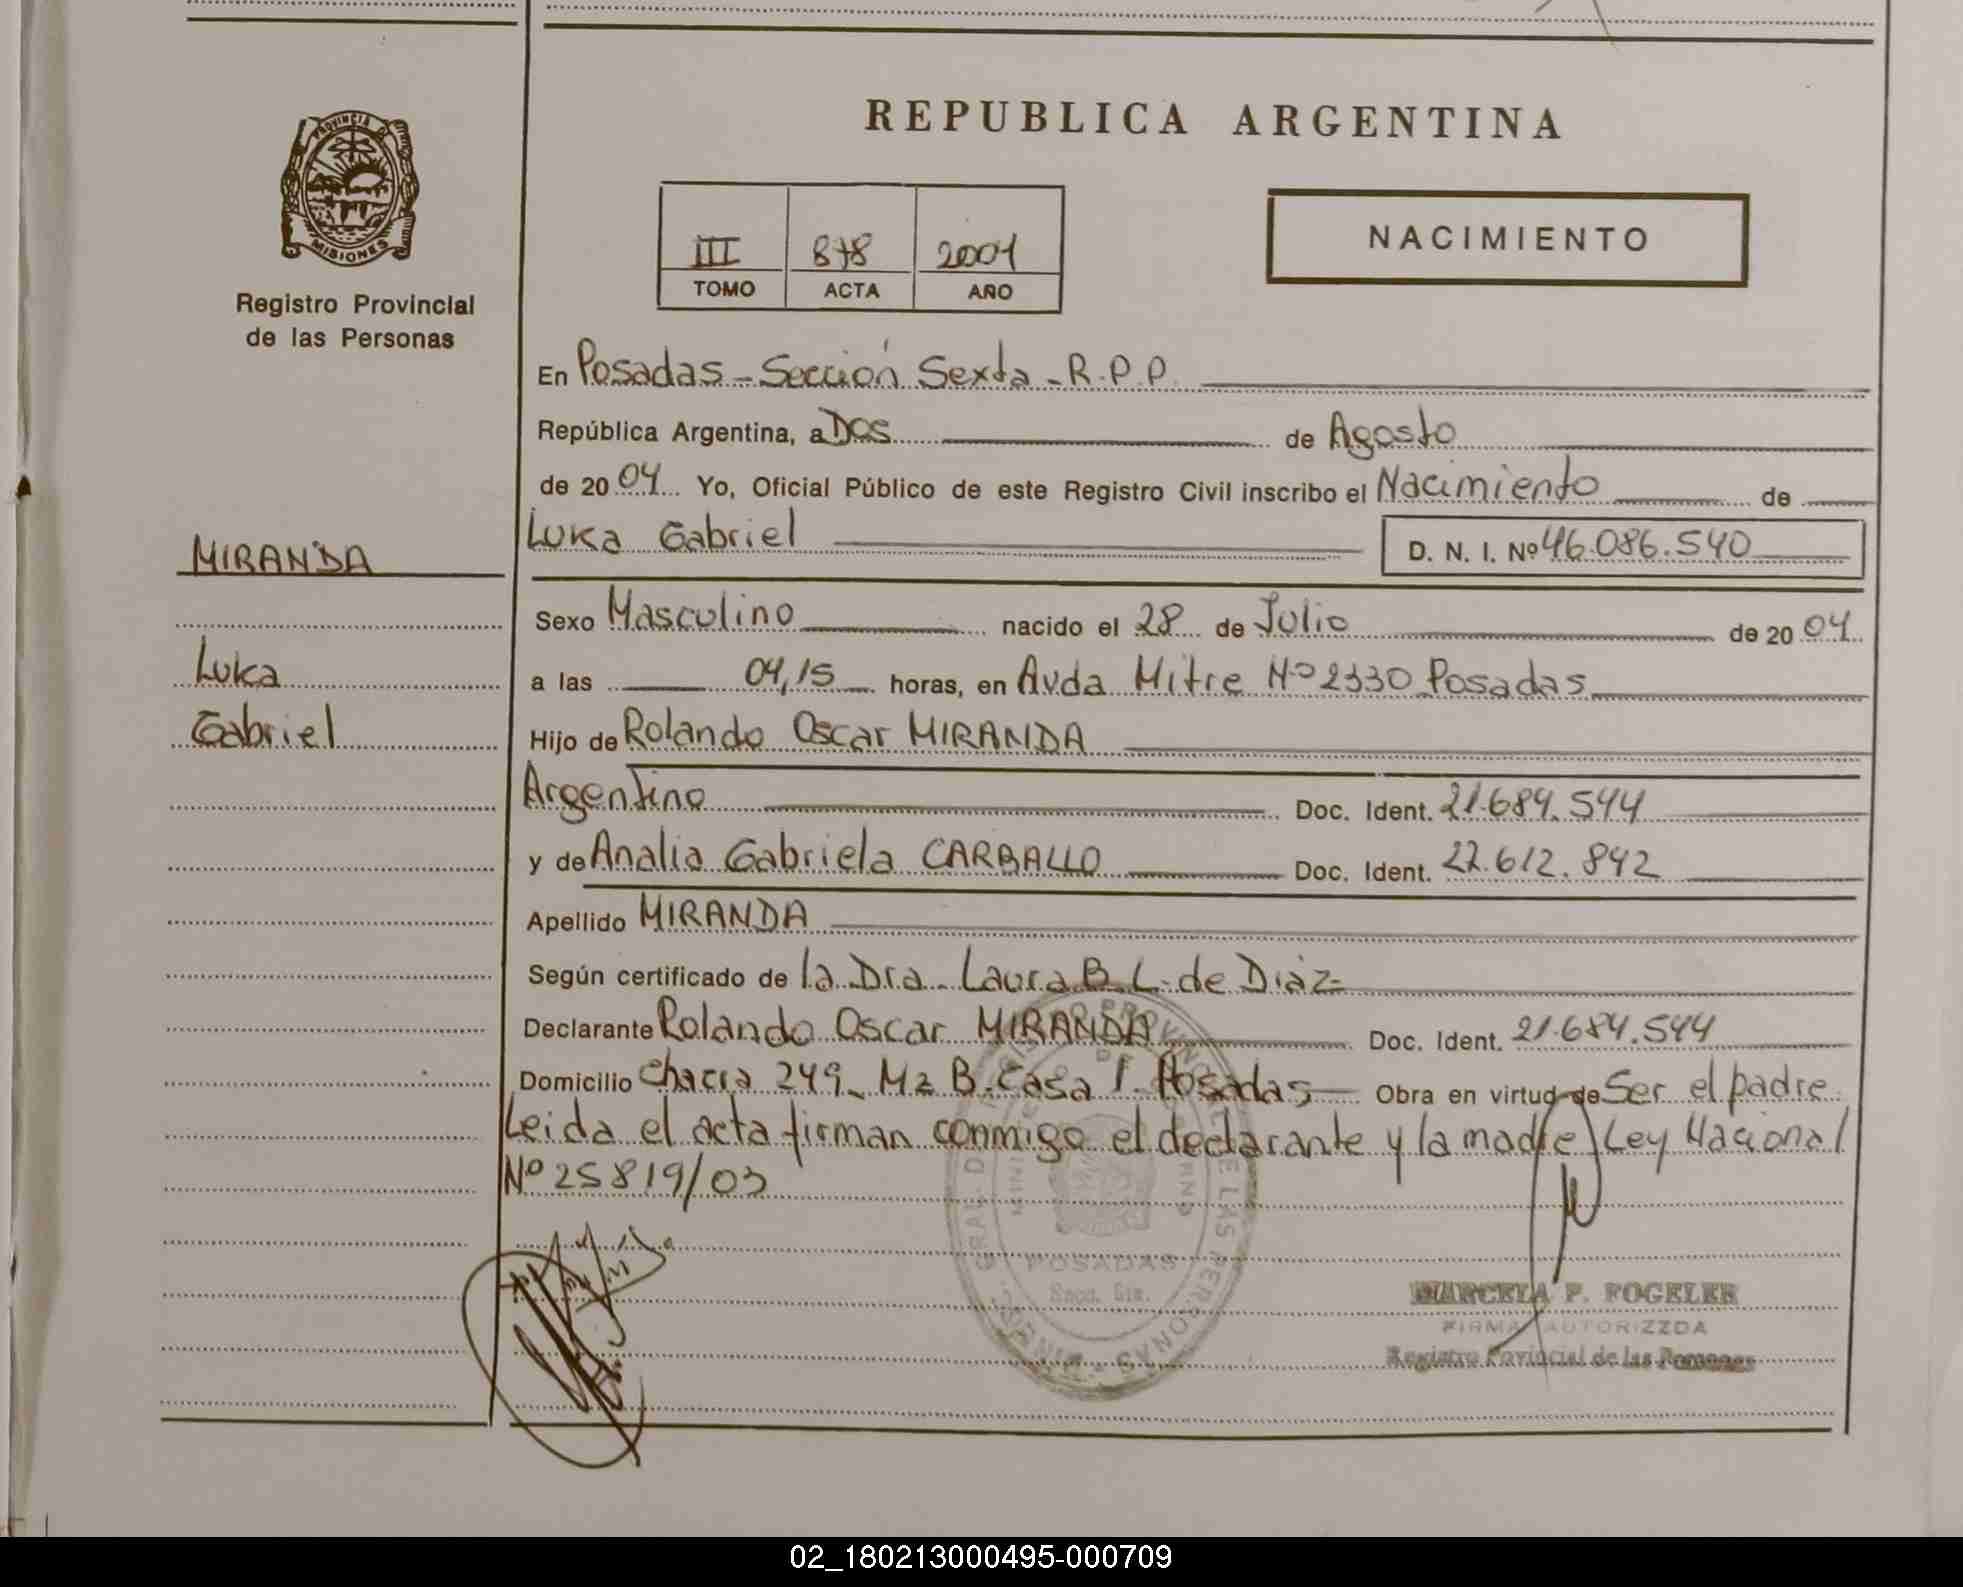 REPUBLICA ARGENTINA
PROVINCIA DE
MISIONES
Registro Provincial
de las Personas
III 878 2004
TOMO ACTA AÑO
NACIMIENTO
En Posadas - Sección Sexta - R.P.P.
República Argentina, a Dos de Agosto
de 2004 Yo, Oficial Público de este Registro Civil inscribo el Nacimiento de
Luka Gabriel D. N. I. Nº 46.086.540
MIRANDA
Luka
Gabriel
Sexo Masculino nacido el 28 de Julio de 2004
a las 04,15 horas, en Avda Mitre Nº 2330 Posadas
Hijo de Rolando Oscar MIRANDA
Argentino Doc. Ident. 21.684.544
y de Analia Gabriela CARBALLO Doc. Ident. 22.612.842
Apellido MIRANDA
Según certificado de la Dra. Laura B. L. de Diaz
Declarante Rolando Oscar MIRANDA Doc. Ident. 21.684.544
Domicilio Chacra 249. Mz B. Casa 1. Posadas Obra en virtud de Ser el padre
Leida el acta firman conmigo el declarante y la madre) Ley Nacional
Nº 25819/03
POSADAS
Secc. 6ta.
MARCELA P. FOGELER
FIRMA AUTORIZZDA
Registro Povincial de las Personas
02_180213000495-000709